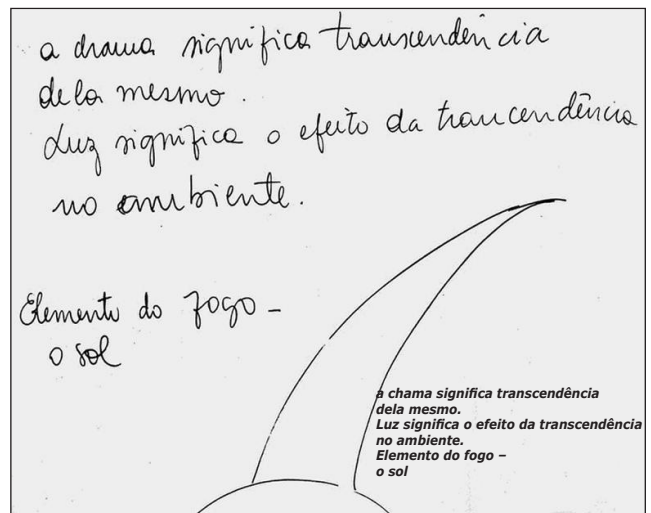 a chama significa transcendência
dela mesmo.
Luz significa o efeito da trancendência
no ambiente.
Elemento do fogo –
o sol
a chama significa transcendência
dela mesmo.
Luz significa o efeito da transcendência
no ambiente.
Elemento do fogo –
o sol